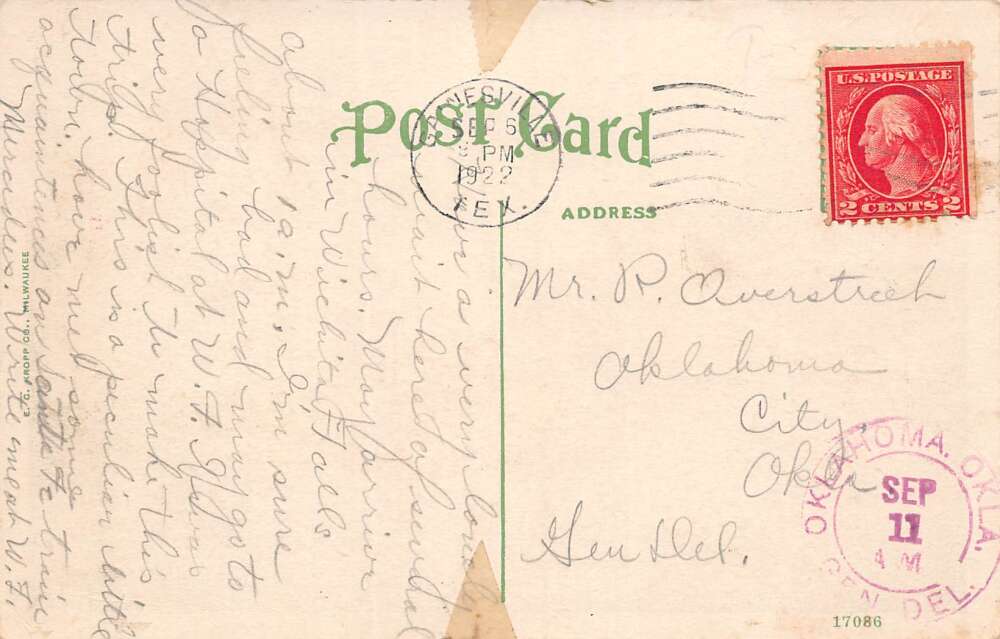 Post Card
ADDRESS
GAINESVILLE
SEP 6
PM
1922
TEX.
U.S. POSTAGE
2 CENTS 2
a very lonely
visit here of several
hours. May arrive
in Wichita Falls
about 1 a.m. I'm sure
bad and may go to
a Hospital at W. F.
very foolish to make this
trip. This is a peculiar little
town, have met some
acquaintances on Santa Fe train
Mercedes. Write me at W. F.
E. C. KROPP CO., MILWAUKEE
Mr. R. Overstreet
Oklahoma
City,
Okla
Gen Del.
OKLAHOMA, OKLA.
SEP
11
AM
GEN. DEL.
17086